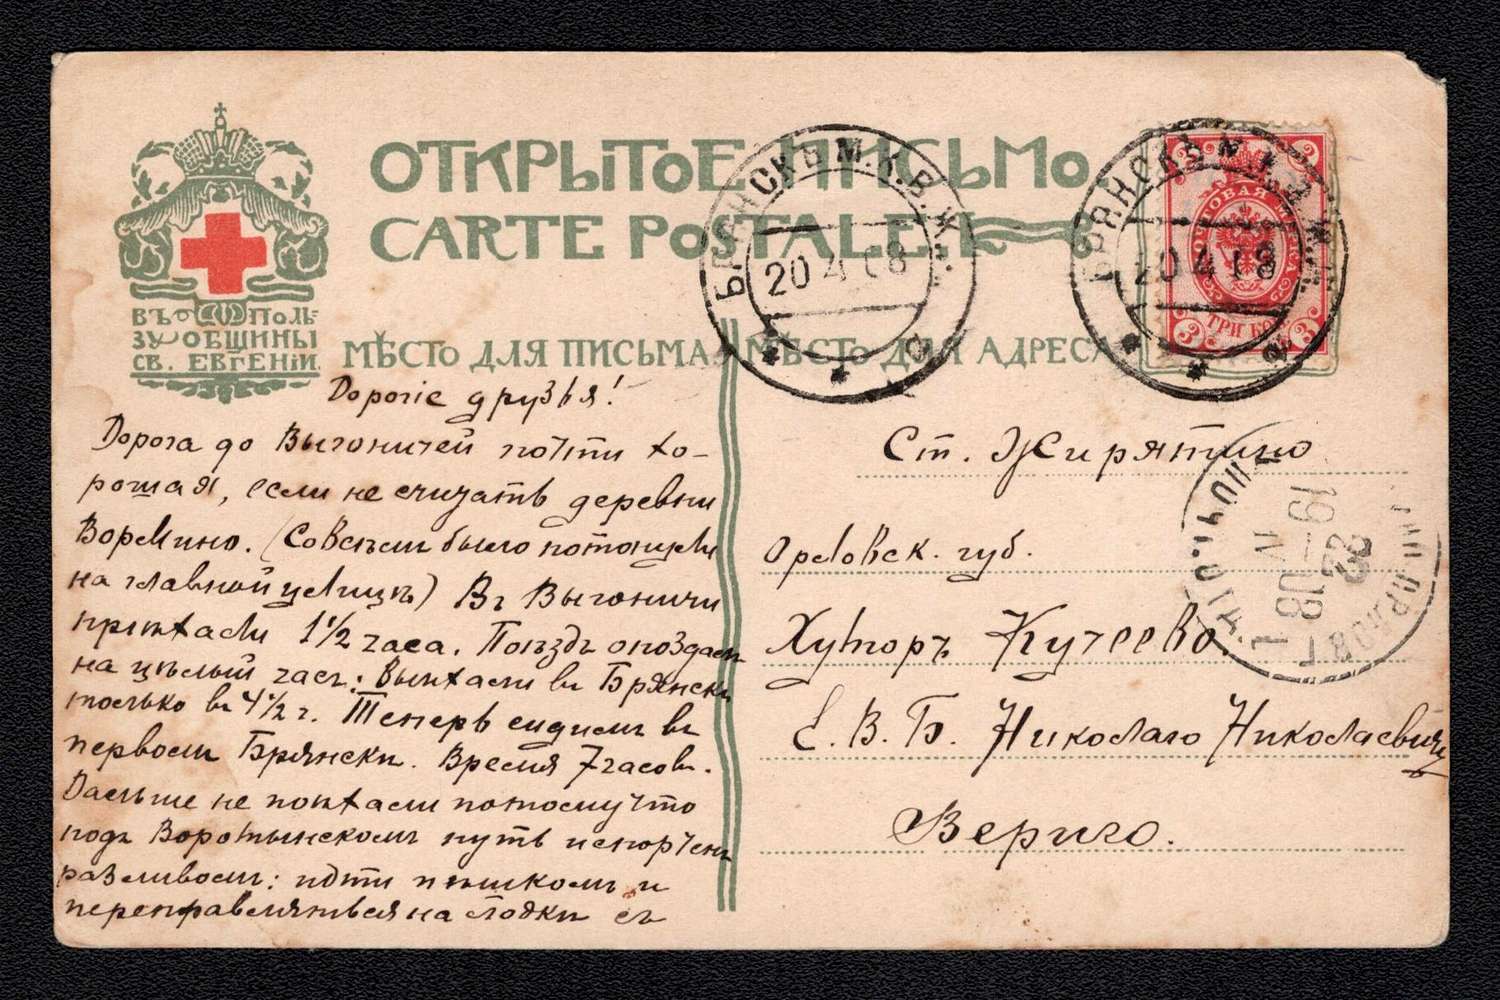 ОТКРЫТОЕ ПИСЬМО.
CARTE POSTALE
ВЪ ПОЛЬ-
ЗУ ОБЩИНЫ
СВ. ЕВГЕНІИ.
МѢСТО ДЛЯ ПИСЬМА
МѢСТО ДЛЯ АДРЕСА
Дорогіе друзья!
Дорога до Выгоничей почти хо-
рошая, если не считать деревни
Вормино. (Совсѣмъ было потонули
на главной улицѣ) Въ Выгоничи
пріѣхали 1 1/2 часа. Поѣздъ опоздалъ
на цѣлый часъ: Выѣхали въ Брянскъ
только въ 4 1/2 ч. Теперь сидимъ въ
первомъ Брянскѣ. Время 7 часовъ.
Дальше не поѣхали потому что
подъ Воротынскомъ путь испорченъ
разливомъ: идти пѣшкомъ и
переправляться на лодкѣ съ
Ст. Жирятино
Орловск. губ.
Хуторъ Кучеево.
Е. В. Б. Николаю Николаевичу
Вериго.
БРЯНСКЪ М.К.В.Ж.
20 4 08
БРЯНСКЪ М.К.В.Ж.
20 4 08
ПОЧТОВАЯ МАРКА
ТРИ КОП.
3 3 3 3
19 IV 08